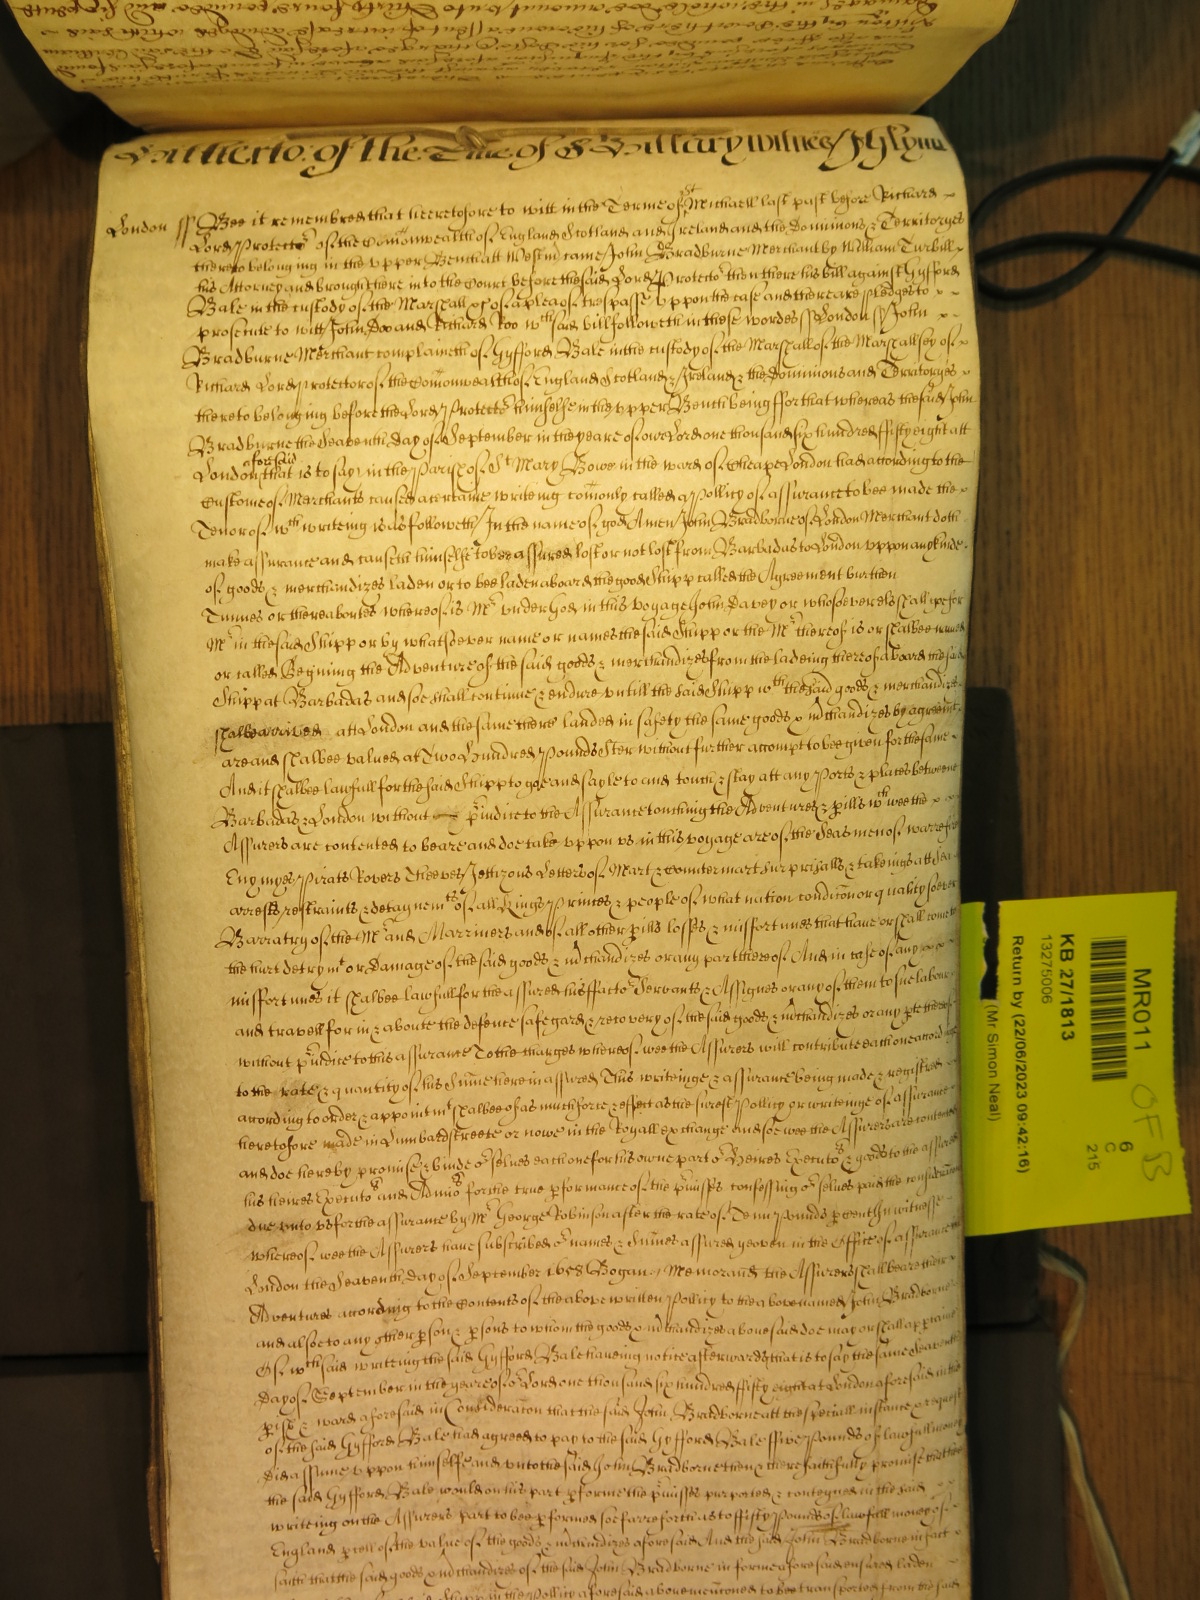 Yett hitherto of the Tme of St Hillary Witnes J Glynn
London ss Bee it remembred that heeretofore to witt in the Terme of St Michaell last past before Richard
Lord Protector of the Comonwealth of England Scotland and Ireland and the Dominions & Territoryes
thereto belonging in the vpper Bench att Westm came John Bradburne Merchant by William Turbill
his Attorney and brought here in to the Court before the said Lord Protector then there his bill against Gyfford
Bale in the custody of the Marshall &c of a plea of trespasse vppon the case and there are pledges to
prosecute to witt John Doo and Richard Roo wch said bill followeth in these wordes ss London ss John
Bradburne Merchant complaineth of Gyfford Bale in the custody of the Marshall of the Marshallsey of
Richard Lord Protector of the Comonwealth of England Scotland & Ireland & the Dominions and Territoryes
thereto belonging before the Lord Protector himselfe in the vpper Bench being ffor that whereas the said John
Bradburne the seaventh day of September in the yeare of our Lord one thousand six hundred ffifty eight att
London aforesaid that is to say in the Parish of St Mary Bowe in the ward of Cheape London had according to the
Custome of Merchants caused a certaine writeing comonly called a Pollicy of assurance to bee made the
Tenor of wch writeing is as followeth In the name of god Amen John Bradborne of London Merchant doth
make assurance and causeth himselfe to bee assured lost or not lost from Barbadas to London vppon any kinde
of goods & merchandizes laden or to bee laden aboard the good shipp called the Agreement burthen
Tunnes or thereabortes whereof is Mr vnder God in this voyage John Davey or whosoever els shall goe for
Mr in the said shipp or by whatsoever name or names the said shipp or the Mr thereof is or shalbee named
or called Begining the Adventure of the said goods & merchandizes from the ladeing thereof aboard the said
shipp at Barbadas and soe shall continue & endure vntill the said shipp wth the said goods & merchandizes
shalbe arrived at London and the same there landed in safety the same goods & mchandizes by agreemt
are and shalbee valued at Two Hundred Pounds ster without further accompt to bee given for the same
And it shalbee lawfull for the said shipp to goe and sayle to and touch & stay att any Ports & places betweene
Barbadas & London without piudice to the Assurance touching the Adventures & pills wch wee the
Assurers are contented to beare and doe take vppon vs in this voyage are of the seas men of warre fire
Enymyes Pirats Rovers Theeves Jettizons Letters of Mart & Countermart surprizalls & takeings att sea
arrests restraints & detaynemts of all Kings Princes & people of what nation condicon or quality soever
Barratry of the Mr and Marriners and of all other pills losses & misfortunes that have or shall come to
the hurt detrymt or damage of the said goods & mchandizes or any part thereof And in case of any
misfortunes it shalbee lawfull for the assured his ffacto Servants & Assignes or any of them to sue labour
and travell for in & aboute the defence safegard & recovery of the said goods & mchandizes or any pte thereof
without piudice to this assurance To the charges whereof wee the Assurers will contribute each one according
to the rate & quantity of his sume herein assured This writeinge & assurance being made & registred
according to order & appointmt shalbee of as much force & effect as the surest Pollicy or writeinge of assurance
heretofore made in Lumbard streete or nowe in the Royall exchange and soe wee the Assurers are contented
and doe hereby promise & binde or selves each one for his owne part or Heires Executors & goods to the assured
his heires Executors and Admrs for the true pformance of the pmisses confessing or selves paid the consideracon
due vnto vs for the assurance by Mr George Robinson after the rate of Tenn Pounds p cent In witnesse
whereof wee the Assurers have subscribed or names & sumes assured geoven in the Office of assurance
London the seaventh day of September 1658 Bogan Memorand the Assurers shall beare their
Adventures according to the Contents of the above written Pollicy to the above named John Bradborne
and alsoe to any other pson & psons to whom the goods & mchandizes abovesaid doe may or shall apptaine
Of wch said writeing the said Gyfford Bale haveing notice afterwards that is to say the same seaventh
day of September in the yeare of or Lord one thousand six hundred ffifty eight at London aforesaid in the
pish & ward aforesaid in Consideracon that the said John Bradborne att the speciall instance & request
of the said Gyfford Bale had agreed to pay to the said Gyfford Bale ffive Pounds of lawfull money
did assume vppon himselfe and vnto the said John Bradborne then & there faithfully promise that hee
the said Gyfford Bale would on his part pforme the pmisses purported & conteyned in the said
writeing on the Assurers part to bee pformed soe farre forth as to ffifty Pounds of lawfull money of
England pcell of the value of the goods & mchandizes aforesaid And the said John Bradborne in fact
saith that the said goods & mchandizes of the said John Bradborne in forme aforesaid ensured laden
shipp in the Pollicy aforesaid abovementioned to bee transported from the said
MR011
OF B
6
C
215
KB 27/1813
13275006
Return by (22/06/2023 09:42:16)
(Mr Simon Neal)